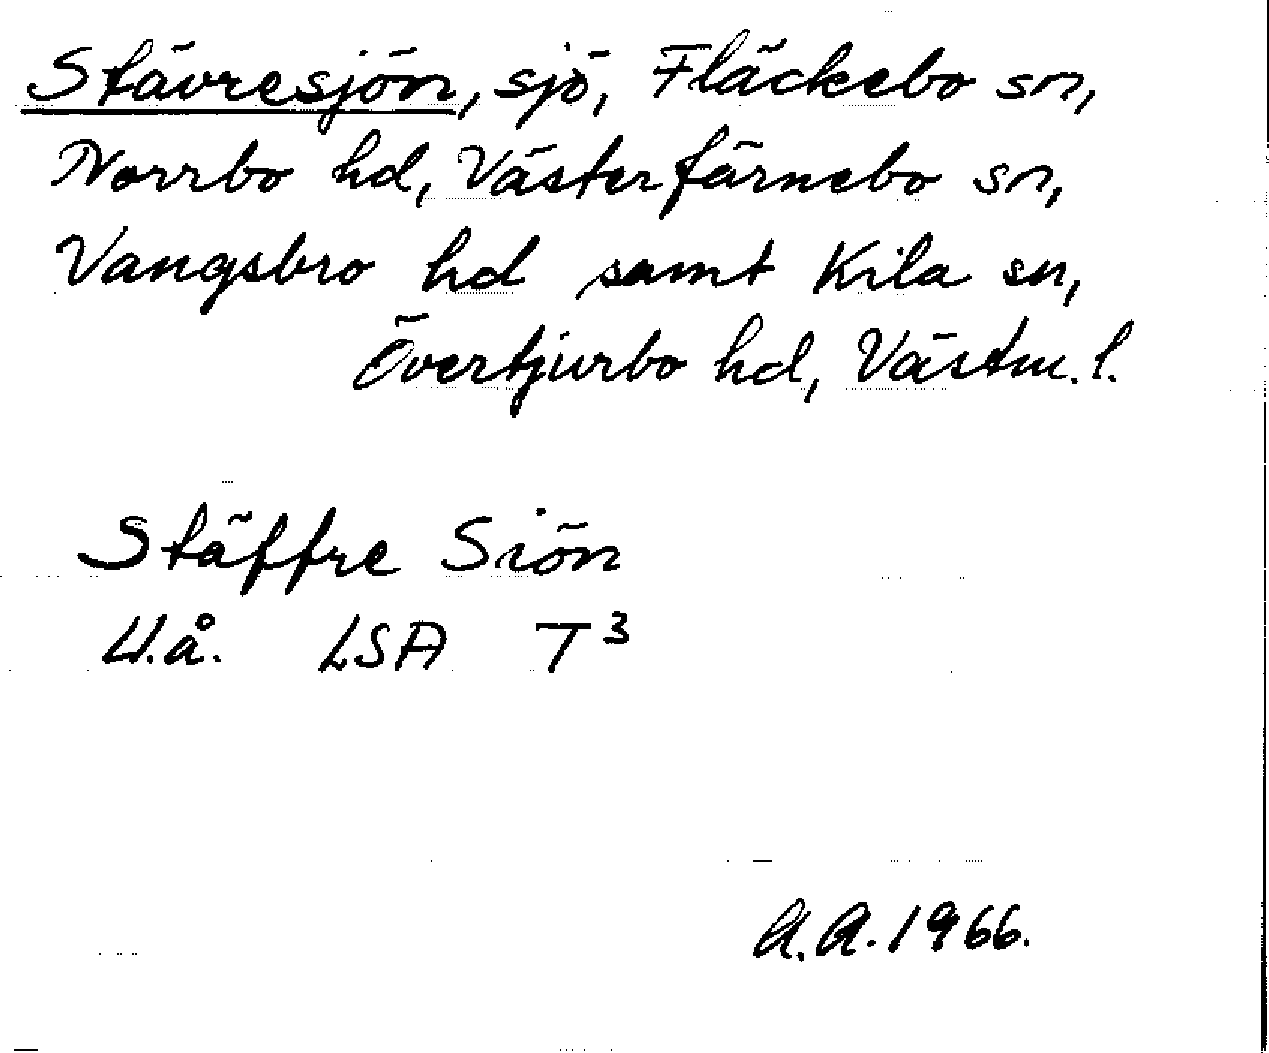 Stävresjön, sjö, Fläckebo sn,
Norrbo hd, Västerfärnebo sn,
Vangsbro hd samt Kila sn,
Övertjurbo hd, Västm. l.
Stäffre Siön
U.å. LSA T³
A.A. 1966.